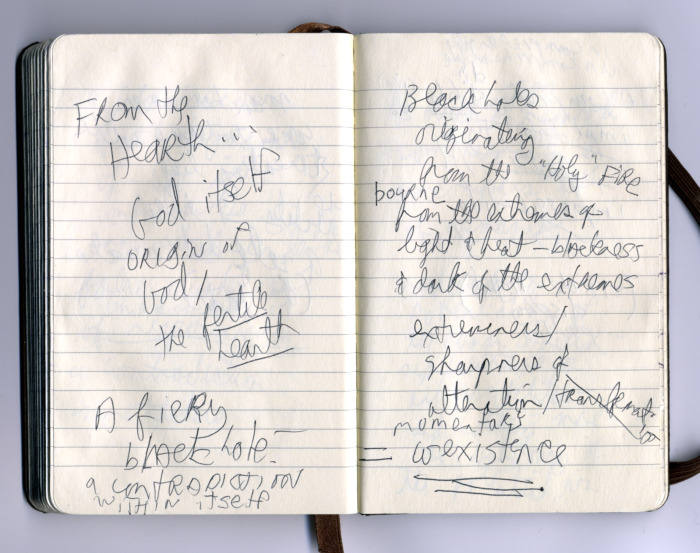 From the
Hearth...
God itself
origin of
God/
the fertile
hearth
A fiery
black hole-
a contradiction
within itself
Black holes
originating
from the "Holy" Fire
bourne
from the extremes of
light & heat - blackness
& dark of the extremes
extremeness/
sharpness of
alteration/transformation
momentary
= coexistence